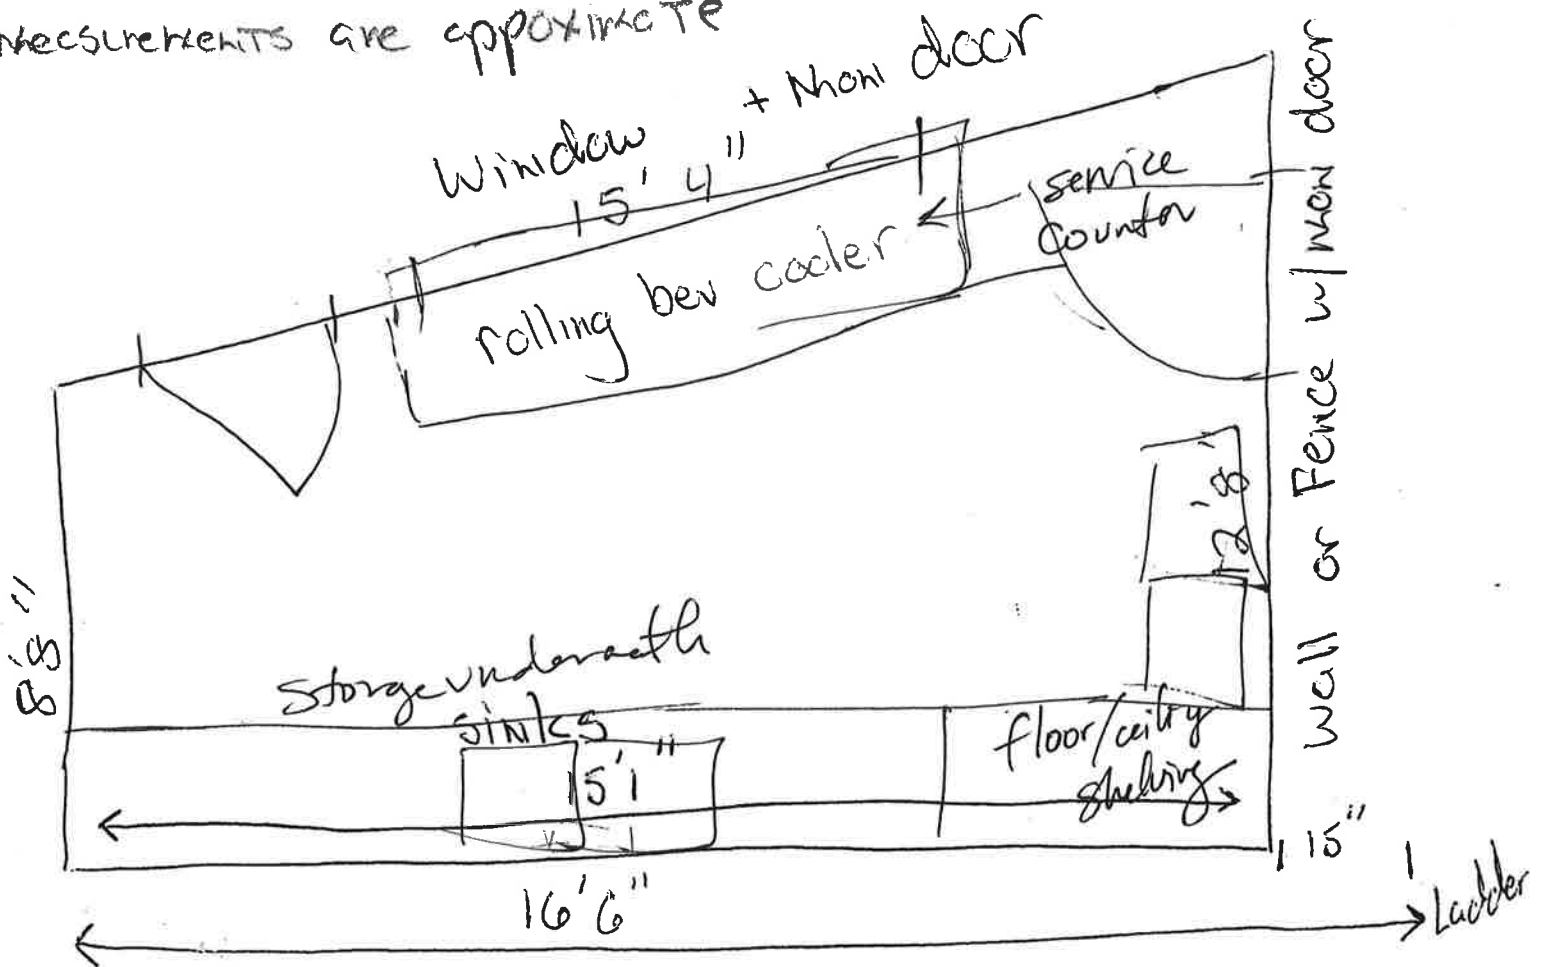 Measurements are appoximate
Window + Mon door
15' 4"
service
counter
rolling bev cooler
Wall or Fence w/mon door
12'8"
8'8"
Storge underneath
sinks
15'1"
floor/ceiling
shelving
15"
16'6"
Ladder